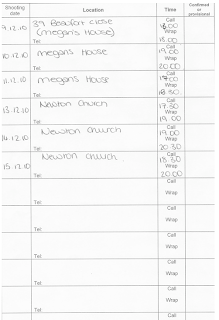 Shooting date Location Time Confirmed or provisional
Call
9.12.10 39 Beaufort Close 18.00
(megans House) Wrap
Tel: 18.00
Call
10.12.10 megans House 19.00
Wrap
Tel: 20.00
Call
11.12.10 megans House 17.00
Wrap
Tel: 18.30
Call
13.12.10 Newton Church 17.30
Wrap
Tel: 19.00
Call
14.12.10 Newton Church 19.00
Wrap
Tel: 20.30
Call
15.12.10 Newton Church. 18.30
Wrap
Tel: 20.00
Call
Wrap
Tel:
Call
Wrap
Tel:
Call
Wrap
Tel:
Call
Wrap
Tel:
Call
Wrap
Tel:
Call